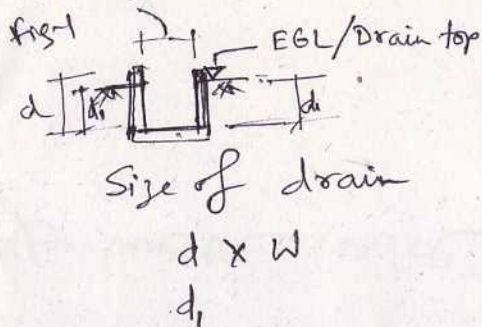 fig-1
EGL/Drain top
d d₁ d₁
Size of drain
d x W
d₁